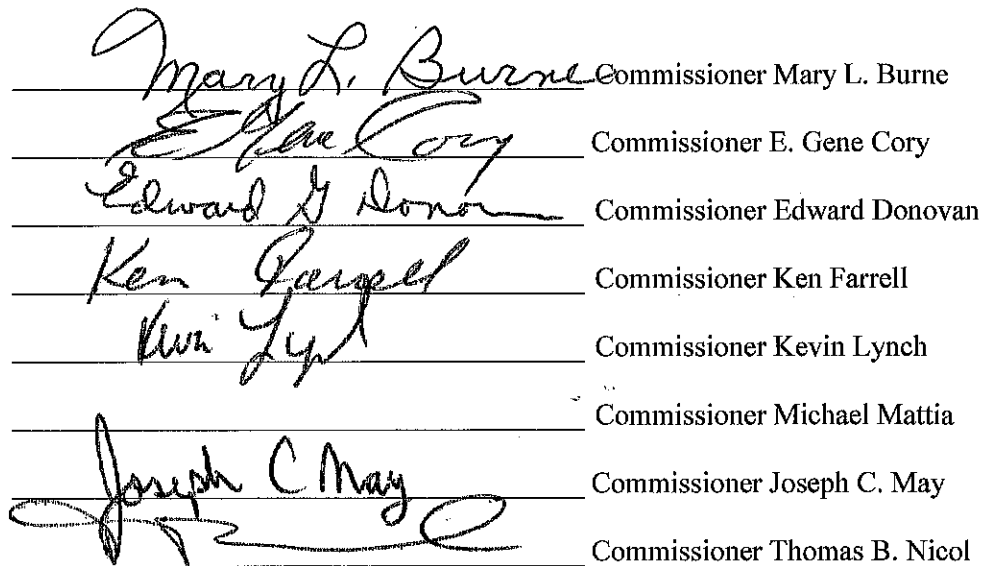 Mary L. Burne Commissioner Mary L. Burne
E Gene Cory Commissioner E. Gene Cory
Edward G Donovan Commissioner Edward Donovan
Ken Farrell Commissioner Ken Farrell
Kevin Lynch Commissioner Kevin Lynch
Commissioner Michael Mattia
Joseph C May Commissioner Joseph C. May
Commissioner Thomas B. Nicol